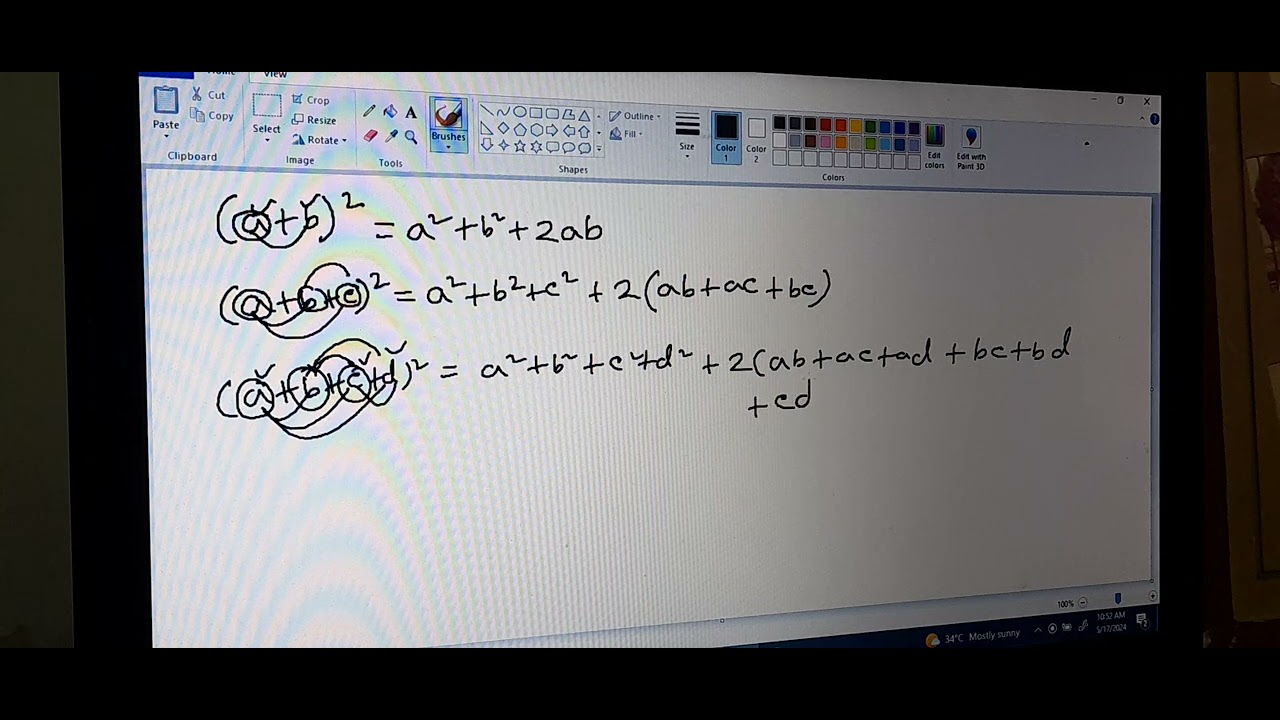 View
Paste
Cut
Copy
Clipboard
Select
Crop
Resize
Rotate
Image
A
Tools
Brushes
Outline
Fill
Shapes
Size
Color 1
Color 2
Edit colors
Edit with Paint 3D
Colors
(a+b)² = a²+b²+2ab
(a+b+c)² = a²+b²+c²+2(ab+ac+bc)
(a+b+c+d)² = a²+b²+c²+d²+2(ab+ac+ad+bc+bd
+cd
100%
34°C Mostly sunny
10:52 AM
5/17/2024